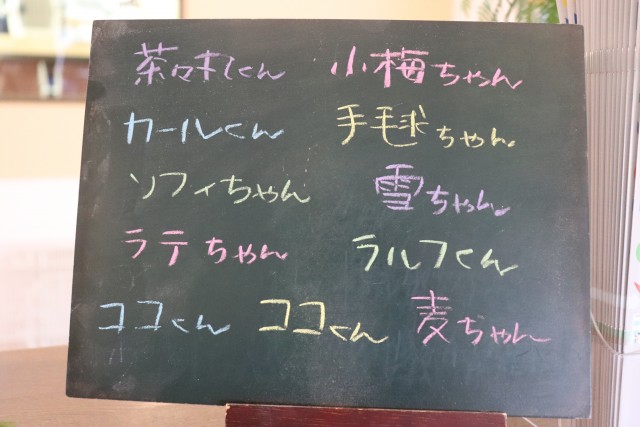 茶々丸くん 小梅ちゃん
カールくん 手毬ちゃん
ソフィちゃん 雪ちゃん
ラテちゃん ラルフくん
ココくん ココくん 麦ちゃん